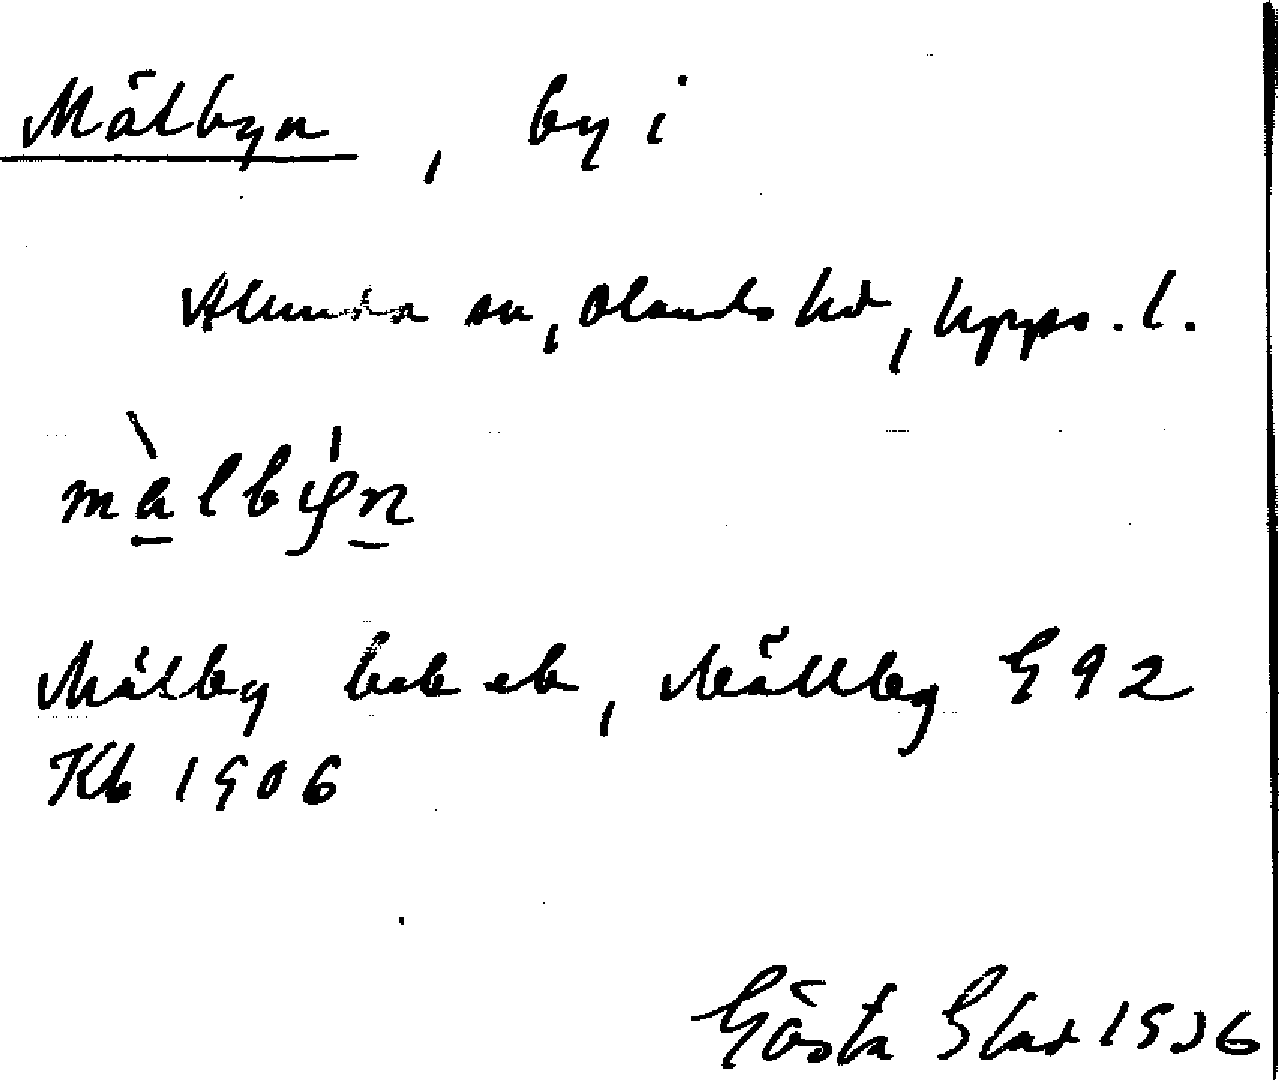 Målbyn, by i
Alunda sn, Olands hd, Upps. l.
målby̨n
Målby bebeb, Mållby G 92
Kb 1906
Gösta Elad 1936